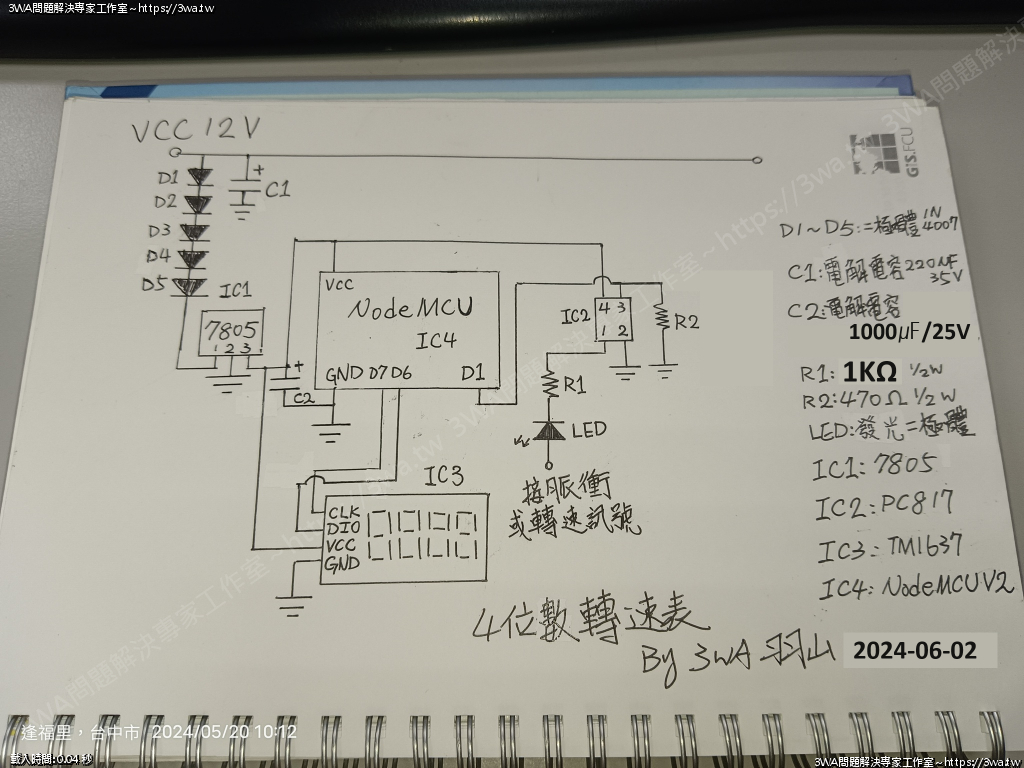 3WA問題解決專家工作室~https://3wa.tw
VCC 12V
D1
D2
D3
D4
D5
+
C1
IC1
7805
1 2 3
+
C2
VCC
NodeMCU
IC4
GND D7 D6
D1
IC2
4 3
1 2
R2
R1
LED
接脈衝
或轉速訊號
IC3
CLK
DIO
VCC
GND
GIS.FCU
D1~D5:二極體 1N4007
C1:電解電容 220μF
35V
C2:電解電容
1000μF/25V
R1: 1KΩ 1/2W
R2:470Ω 1/2W
LED:發光二極體
IC1: 7805
IC2: PC817
IC3: TM1637
IC4: NodeMCU V2
4位數轉速表
By 3WA 羽山
2024-06-02
逢福里，台中市 2024/05/20 10:12
載入時間:0.04 秒
3WA問題解決專家工作室~https://3wa.tw